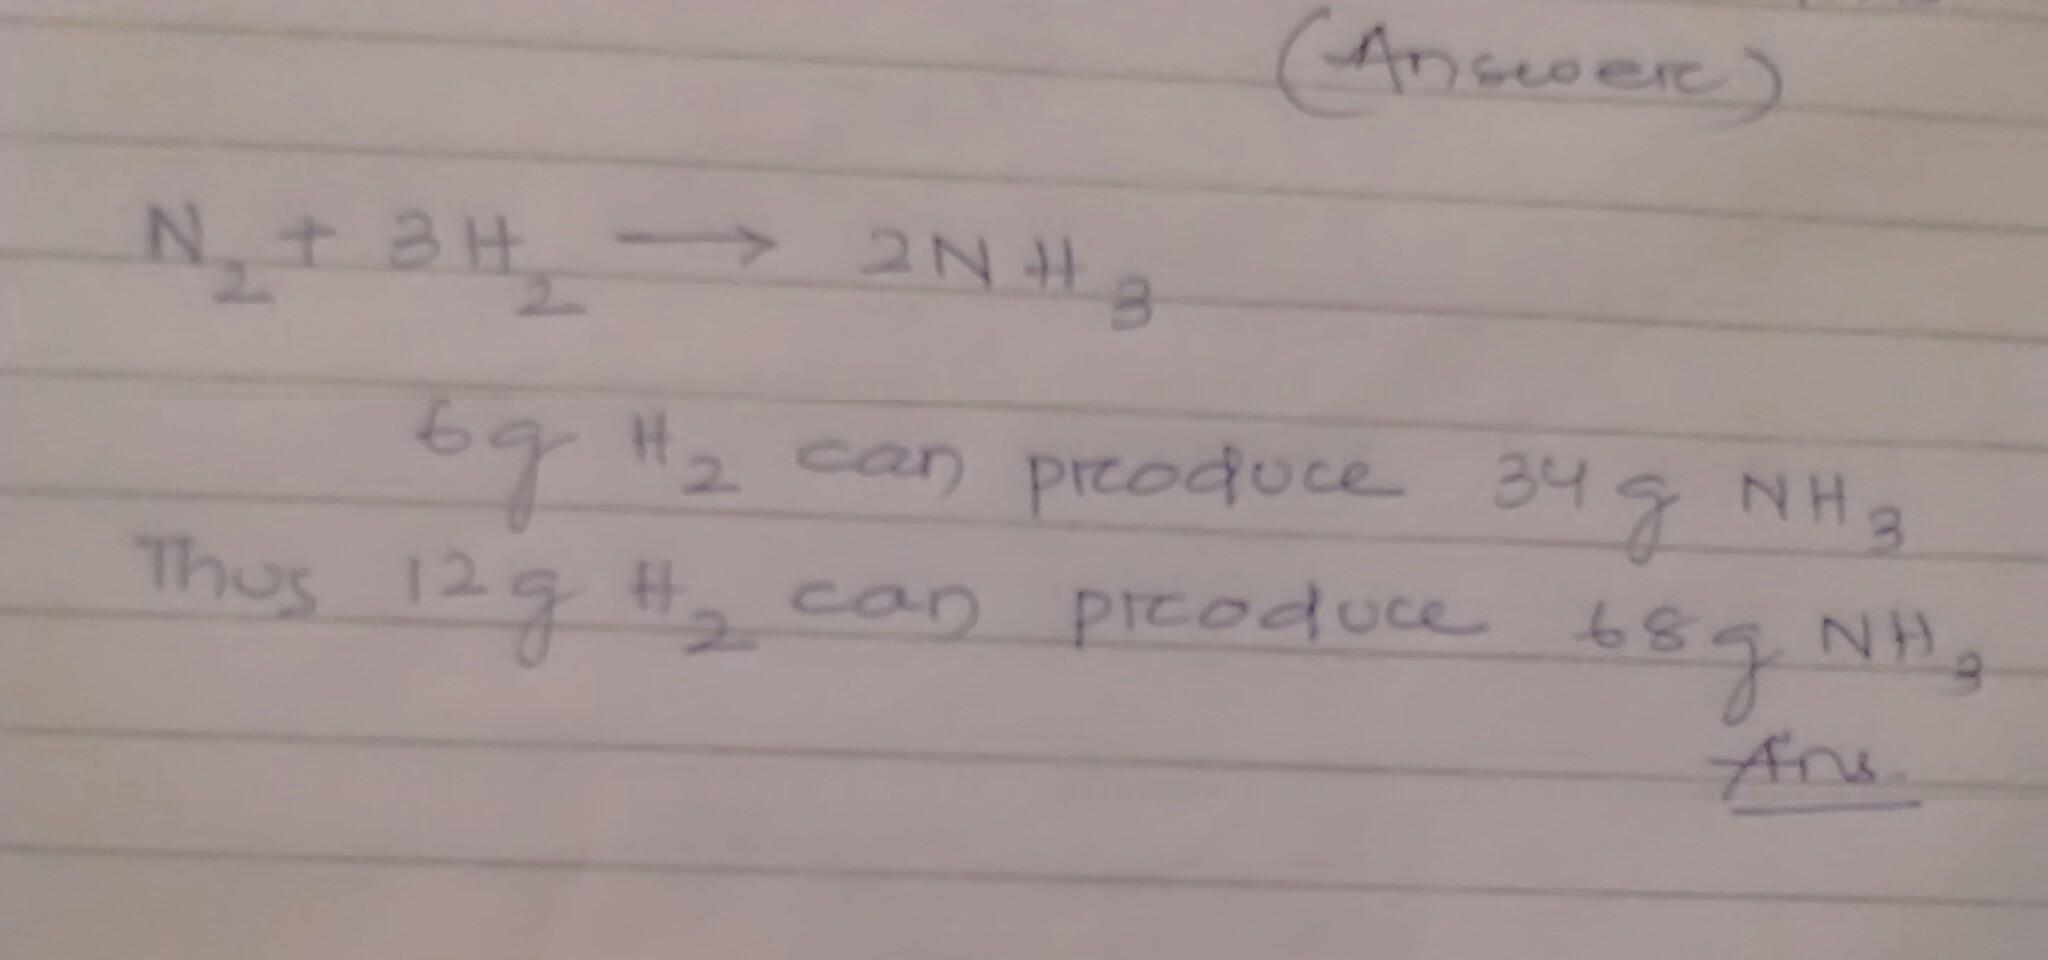 (Answer)
N₂ + 3H₂ → 2NH₃
6g H₂ can produce 34g NH₃
Thus 12g H₂ can produce 68g NH₃
Ans.